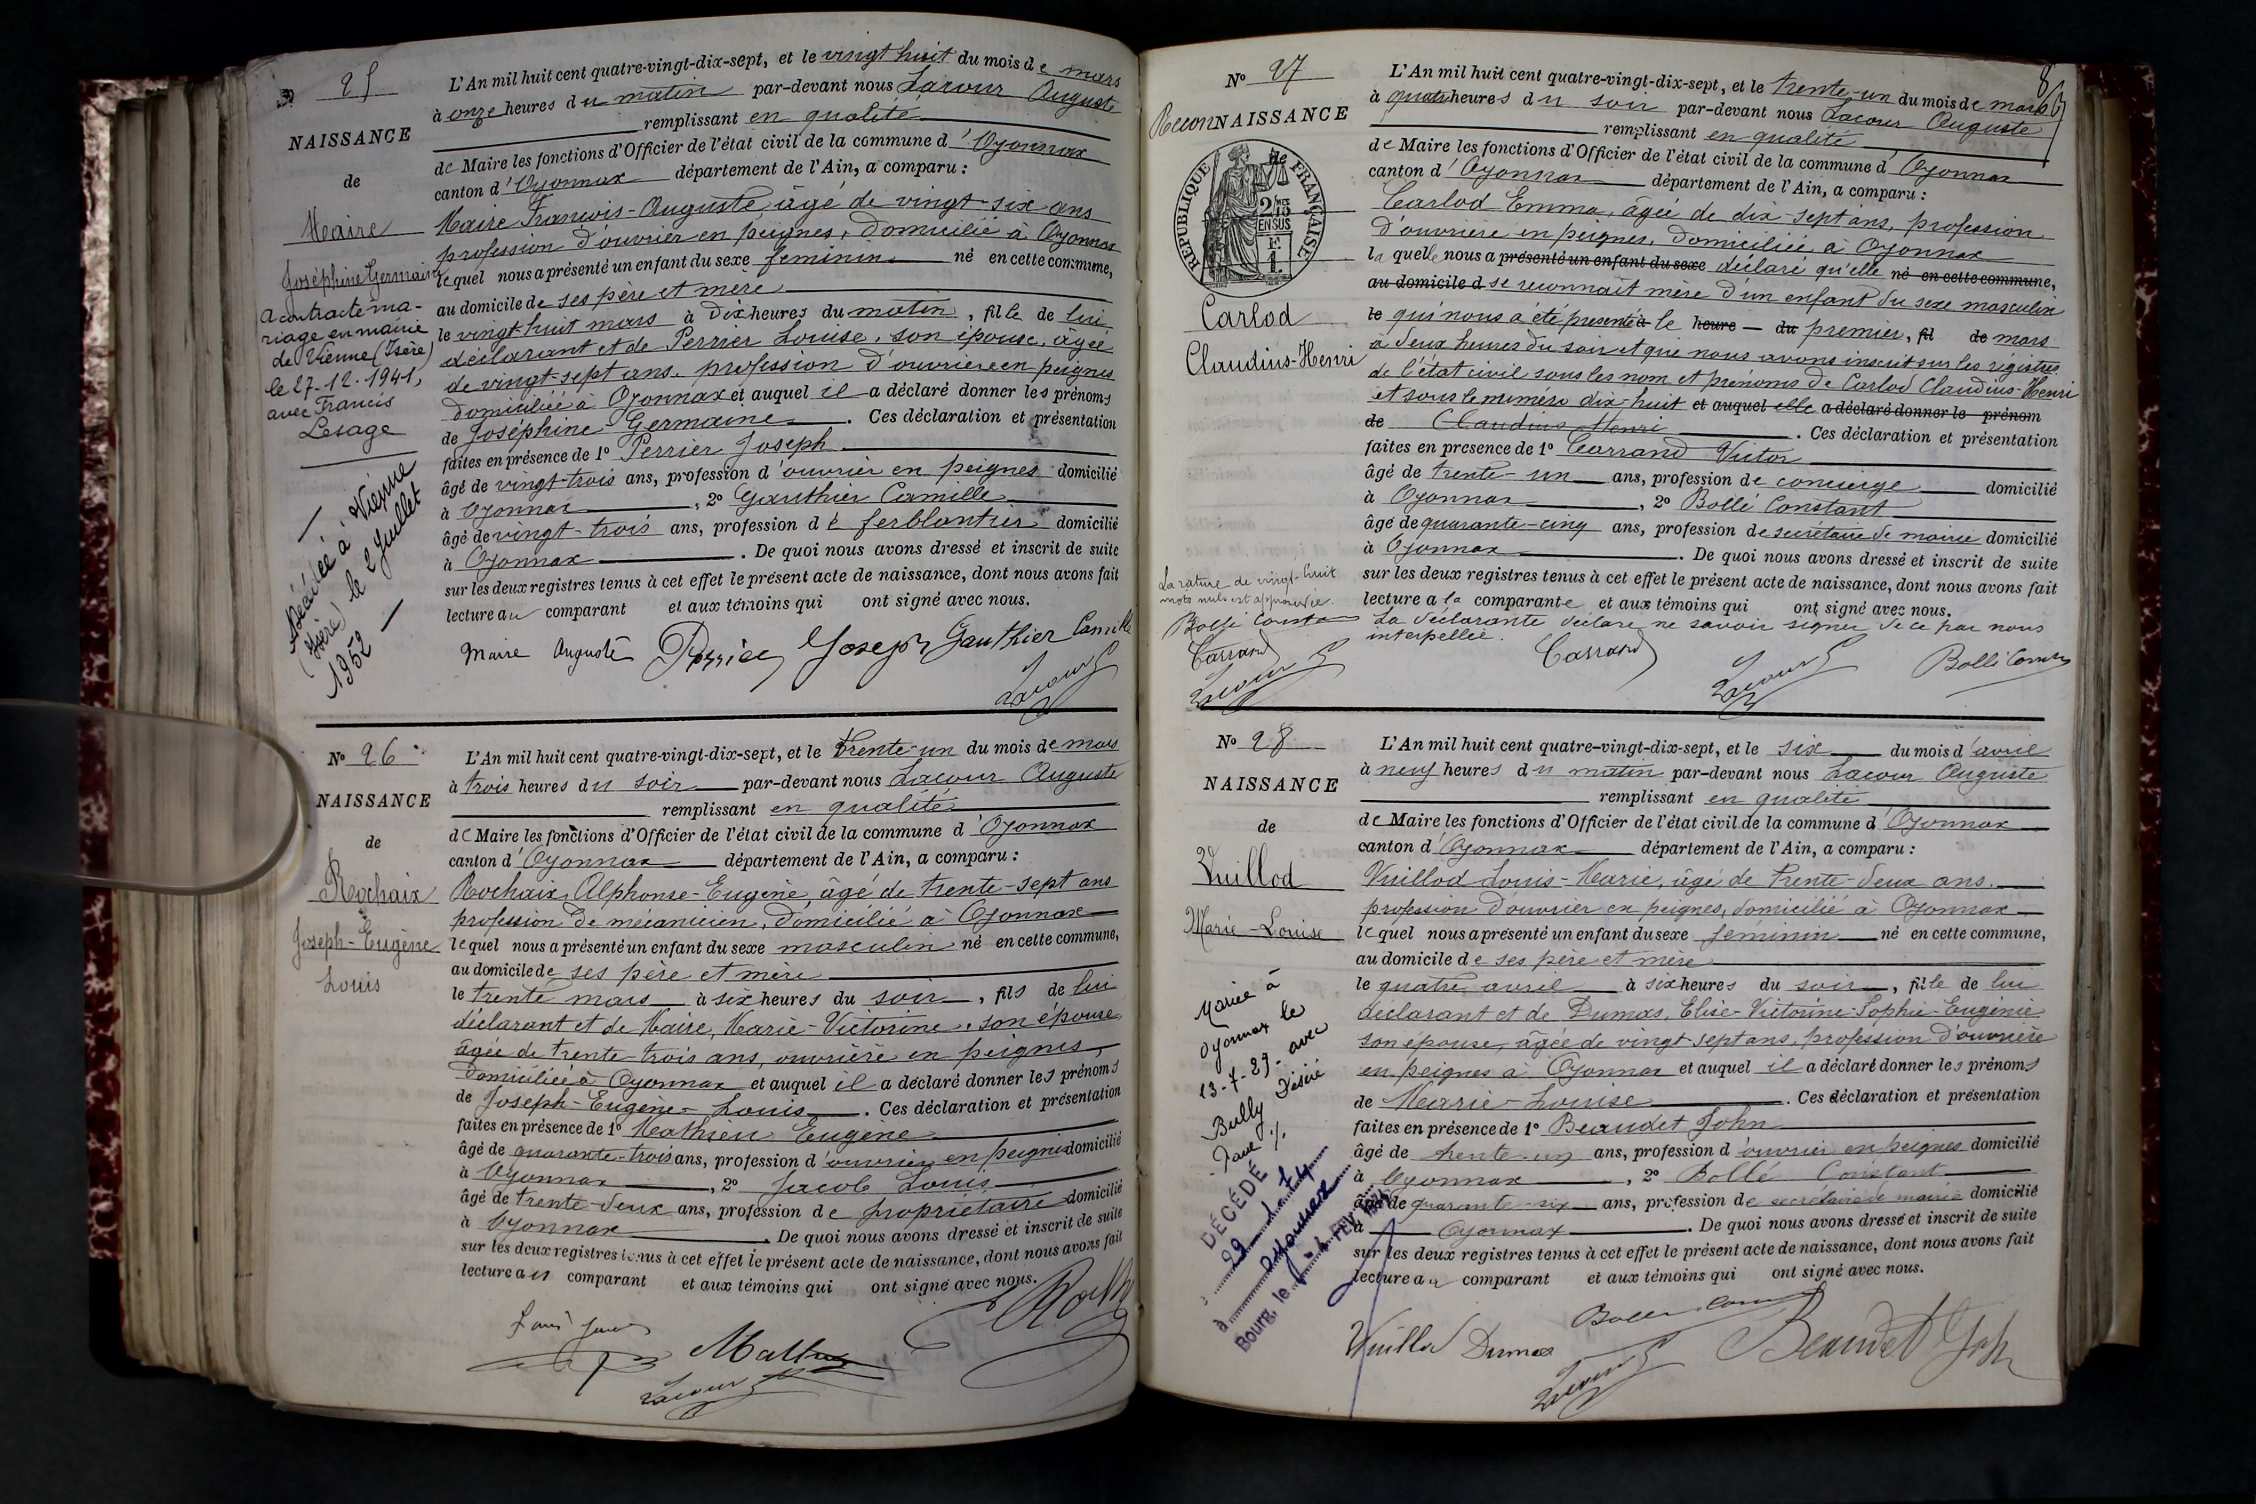 25
NAISSANCE
de
Maire
Joséphine Germaine
a contracté ma-
riage en mairie
de Vienne (Isère)
le 27-12-1941,
avec Francis
Lesage
Décédée à Vienne
(Isère) le 2 Juillet
1952
L'An mil huit cent quatre-vingt-dix-sept, et le vingt huit du mois de mars
à onze heures du matin par-devant nous Lacour Auguste
remplissant en qualité
de Maire les fonctions d'Officier de l'état civil de la commune d'Oyonnax
canton d'Oyonnax département de l'Ain, a comparu :
Maire François-Auguste âgé de vingt-six ans
profession d'ouvrier en peignes, domicilié à Oyonnax
lequel nous a présenté un enfant du sexe féminin né en cette commune,
au domicile de ses père et mère
le vingt huit mars à dix heures du matin, fille de lui
déclarant et de Perrier Louise, son épouse, âgée
de vingt-sept ans, profession d'ouvrière en peignes
domiciliée à Oyonnax et auquel il a déclaré donner les prénoms
de Joséphine Germaine. Ces déclaration et présentation
faites en présence de 1º Perrier Joseph
âgé de vingt-trois ans, profession d'ouvrier en peignes domicilié
à Oyonnax, 2º Gauthier Camille
âgé de vingt-trois ans, profession de ferblantier domicilié
à Oyonnax. De quoi nous avons dressé et inscrit de suite
sur les deux registres tenus à cet effet le présent acte de naissance, dont nous avons fait
lecture au comparant et aux témoins qui ont signé avec nous.
Maire Auguste Perrier Joseph Gauthier Camille
Lacour
Nº 26
NAISSANCE
de
Rochaix
Joseph-Eugène
Louis
L'An mil huit cent quatre-vingt-dix-sept, et le trente-un du mois de mars
à trois heures du soir par-devant nous Lacour Auguste
remplissant en qualité
de Maire les fonctions d'Officier de l'état civil de la commune d'Oyonnax
canton d'Oyonnax département de l'Ain, a comparu :
Rochaix Alphonse-Eugène, âgé de trente-sept ans
profession de mécanicien, domicilié à Oyonnax
lequel nous a présenté un enfant du sexe masculin né en cette commune,
au domicile de ses père et mère
le trente mars à six heures du soir, fils de lui
déclarant et de Maire, Marie-Victorine, son épouse
âgée de trente-trois ans, ouvrière en peignes,
domiciliée à Oyonnax et auquel il a déclaré donner les prénoms
de Joseph-Eugène-Louis. Ces déclaration et présentation
faites en présence de 1º Mathieu Eugène
âgé de quarante-trois ans, profession d'ouvrier en peignes domicilié
à Oyonnax, 2º Jacob Louis
âgé de trente-deux ans, profession de propriétaire domicilié
à Oyonnax. De quoi nous avons dressé et inscrit de suite
sur les deux registres tenus à cet effet le présent acte de naissance, dont nous avons fait
lecture au comparant et aux témoins qui ont signé avec nous.
Lacour
86
Nº 27
ReconNAISSANCE
de
RÉPUBLIQUE FRANÇAISE
2/10es
EN SUS
Carlod
Claudius-Henri
La rature de vingt-huit
mots nuls est approuvée.
Bollé Constant
Carrand
Lacour
L'An mil huit cent quatre-vingt-dix-sept, et le trente-un du mois de mars
à quatre heures du soir par-devant nous Lacour Auguste
remplissant en qualité
de Maire les fonctions d'Officier de l'état civil de la commune d'Oyonnax
canton d'Oyonnax département de l'Ain, a comparu :
Carlod Emma, âgée de dix-sept ans, profession
d'ouvrière en peignes, domiciliée à Oyonnax
laquelle nous a présenté un enfant du sexe déclaré qu'elle né en cette commune,
au domicile d se reconnait mère d'un enfant du sexe masculin
le qui nous a été présenté à le heure du premier, fil de mars
à deux heures du soir et que nous avons inscrit sur les registres
de l'état civil sous les nom et prénoms de Carlod Claudius-Henri
et sous le numéro dix-huit et auquel elle a déclaré donner le prénom
de Claudius Henri. Ces déclaration et présentation
faites en présence de 1º Carrand Victor
âgé de trente-un ans, profession de concierge domicilié
à Oyonnax, 2º Bollé Constant
âgé de quarante-cinq ans, profession de secrétaire de mairie domicilié
à Oyonnax. De quoi nous avons dressé et inscrit de suite
sur les deux registres tenus à cet effet le présent acte de naissance, dont nous avons fait
lecture a la comparante et aux témoins qui ont signé avec nous.
La déclarante déclare ne savoir signer de ce par nous
interpellée.
Carrand Lacour Bollé Constant
Nº 28
NAISSANCE
de
Vuillod
Marie-Louise
Mariée à
Oyonnax le
13-7-29- avec
Bully Désiré
DÉCÉDÉ
à Oyonnax
Bourg, le
L'An mil huit cent quatre-vingt-dix-sept, et le six du mois d'avril
à neuf heures du matin par-devant nous Lacour Auguste
remplissant en qualité
de Maire les fonctions d'Officier de l'état civil de la commune d'Oyonnax
canton d'Oyonnax département de l'Ain, a comparu :
Vuillod Louis-Marie, âgé de trente-deux ans,
profession d'ouvrier en peignes, domicilié à Oyonnax
lequel nous a présenté un enfant du sexe féminin né en cette commune,
au domicile de ses père et mère
le quatre avril à six heures du soir, fille de lui
déclarant et de Dumas, Elise-Victorine-Sophie-Eugénie
son épouse, âgée de vingt sept ans, profession d'ouvrière
en peignes à Oyonnax et auquel il a déclaré donner les prénoms
de Marie-Louise. Ces déclaration et présentation
faites en présence de 1º Beaudet John
âgé de trente-un ans, profession d'ouvrier en peignes domicilié
à Oyonnax, 2º Bollé Constant
âgé de quarante-six ans, profession de secrétaire de mairie domicilié
à Oyonnax. De quoi nous avons dressé et inscrit de suite
sur les deux registres tenus à cet effet le présent acte de naissance, dont nous avons fait
lecture au comparant et aux témoins qui ont signé avec nous.
Vuillod Dumas Bollé Constant Beaudet John
Lacour